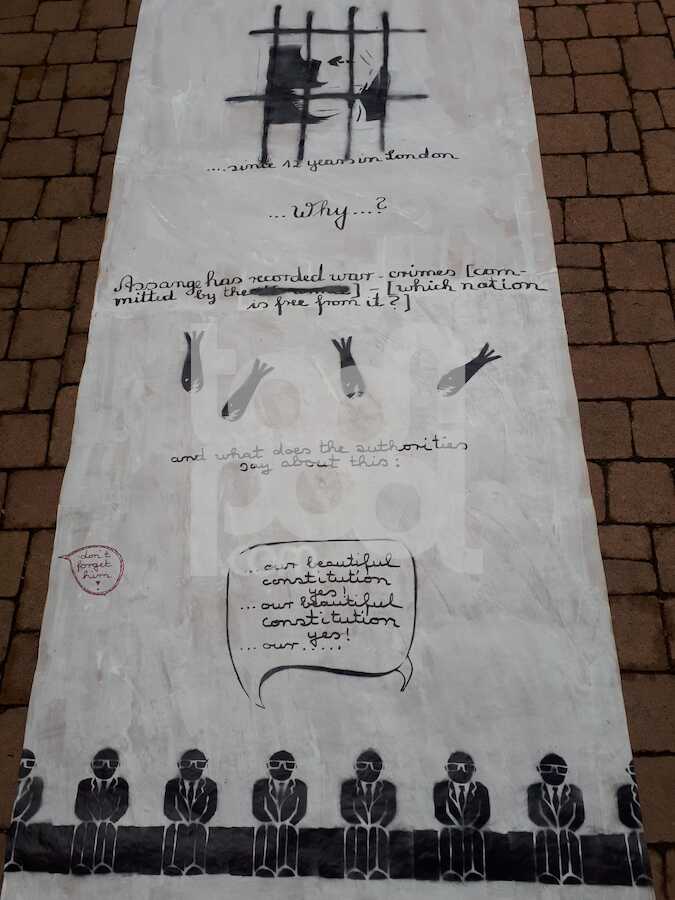 ....since 12 years in London
...Why...?
Assange has recorded war-crimes [com-
mitted by the ] - [which nation
is free from it?]
and what does the authorities
say about this:
don't
forget
him
...our beautiful
constitution
yes!
...our beautiful
constitution
yes!
...our.....